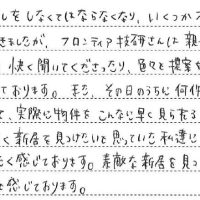 しをしなくてはならなくなり、いくつか
きましたが、フロンティア技研さんは親
快く聞いてくださったり、色々と提案を
ております。また、その日のうちに何件
て、実際に物件をこんなに早く見られる
く新居を見つけたいと思っていた私達に
たく感じております。素敵な新居を見つ
感じております。